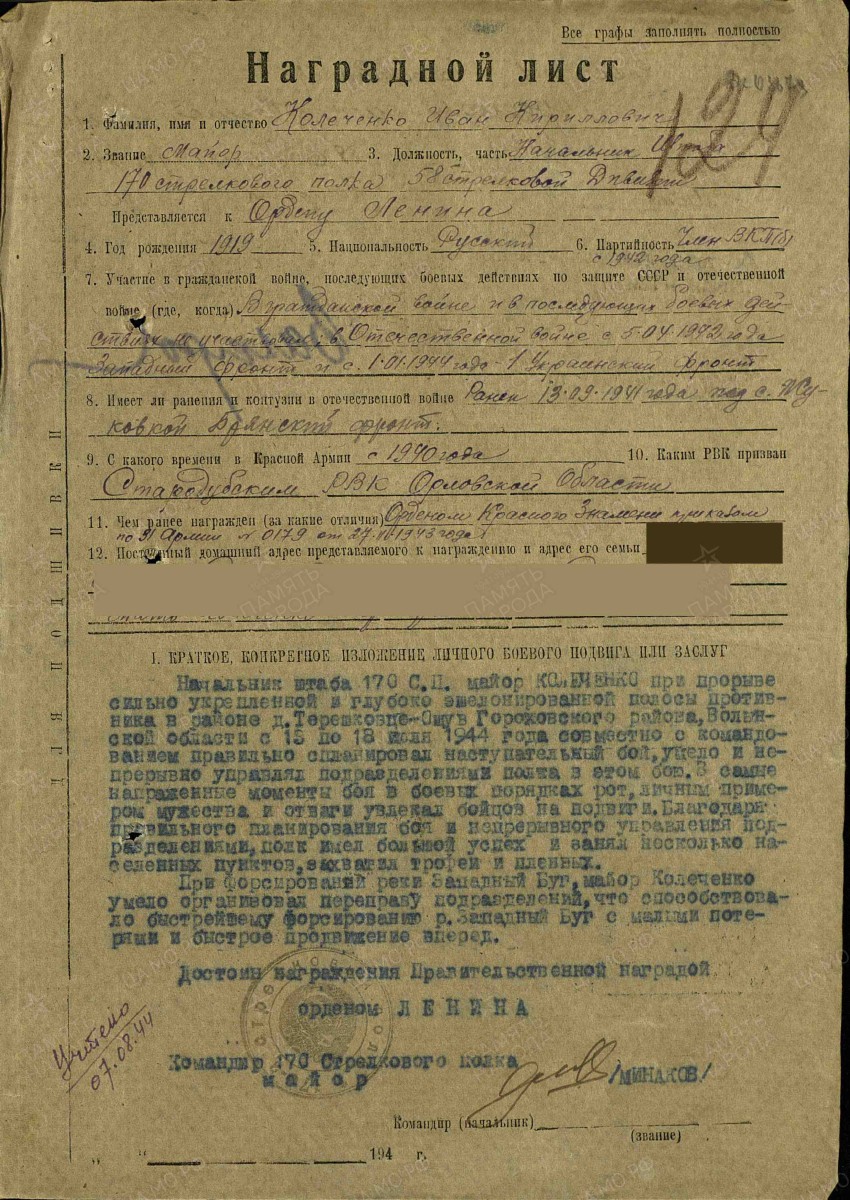 Все графы заполнять полностью
Наградной лист
124
1. Фамилия, имя и отчество Колеченко Иван Кириллович
2. Звание Майор 3. Должность, часть Начальник Штаба
170 стрелкового полка 58 стрелковой Дивизии
Представляется к Ордену Ленина
4. Год рождения 1919 5. Национальность Русский 6. Партийность Член ВКП(б)
с 1942 года
7. Участие в гражданской войне, последующих боевых действиях по защите СССР и отечественной
войне (где, когда) В гражданской войне и в последующих боевых дей-
ствиях не участвовал; в Отечественной войне с 5.04.1942 года
Западный фронт и с 1.01.1944 года - 1 Украинский фронт
8. Имеет ли ранения и контузии в отечественной войне Ранен 13.09.1941 года под с. Жу-
ковкой Брянский фронт.
9. С какого времени в Красной Армии с 1940 года 10. Каким РВК призван
Стародубским РВК Орловской Области
11. Чем ранее награжден (за какие отличия) Орденом Красного Знамени приказом
по 31 Армии № 0179 от 1943 года
12. Постоянный домашний адрес представляемого к награждению и адрес его семьи
I. КРАТКОЕ, КОНКРЕТНОЕ ИЗЛОЖЕНИЕ ЛИЧНОГО БОЕВОГО ПОДВИГА ИЛИ ЗАСЛУГ
Начальник штаба 170 С.П. майор КОЛЕЧЕНКО при прорыве
сильно укрепленной и глубоко эшелонированной полосы против-
ника в районе д. Терешковце-Ощув Гороховского района, Волын-
ской области с 15 по 18 июля 1944 года совместно с командо-
ванием правильно спланировал наступательный бой, умело и не-
прерывно управлял подразделениями полка в этом бою. В самые
напряженные моменты боя в боевых порядках рот, личным приме-
ром мужества и отваги увлекал бойцов на подвиги. Благодаря
правильного планирования боя и непрерывного управления под-
разделениями, полк имел большой успех и занял несколько на-
селенных пунктов, захватил трофеи и пленных.
При форсировании реки Западный Буг, майор Колеченко
умело организовал переправу подразделений, что способствова-
ло быстрейшему форсированию р. Западный Буг с малыми поте-
рями и быстрое продвижение вперед.
Достоин награждения Правительственной наградой
орденом ЛЕНИНА
Учтено
07.08.44
Командир 170 Стрелкового полка
майор /МИНАКОВ/
Командир (начальник)
(звание)
" " 194 г.
ДЛЯ ПОДШИВКИ